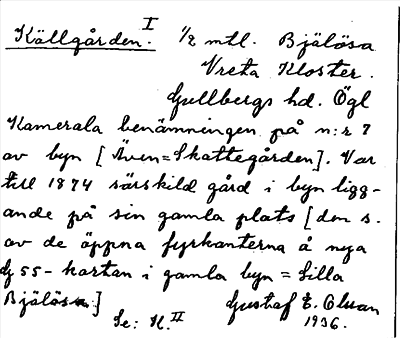 Källgården. I 1/2 mtl. Bjälösa
Vreta Kloster.
Gullbergs hd. Ögl
Kamerala benämningen på n:r 7
av byn [Även = Skattegården]. Var
till 1874 särskild gård i byn ligg-
ande på sin gamla plats [den s.
av de öppna fyrkanterna å nya
Gj 55-kartan i gamla byn = Lilla
Bjälösa]
Gustaf E. Olsson
Se: K. II 1936.